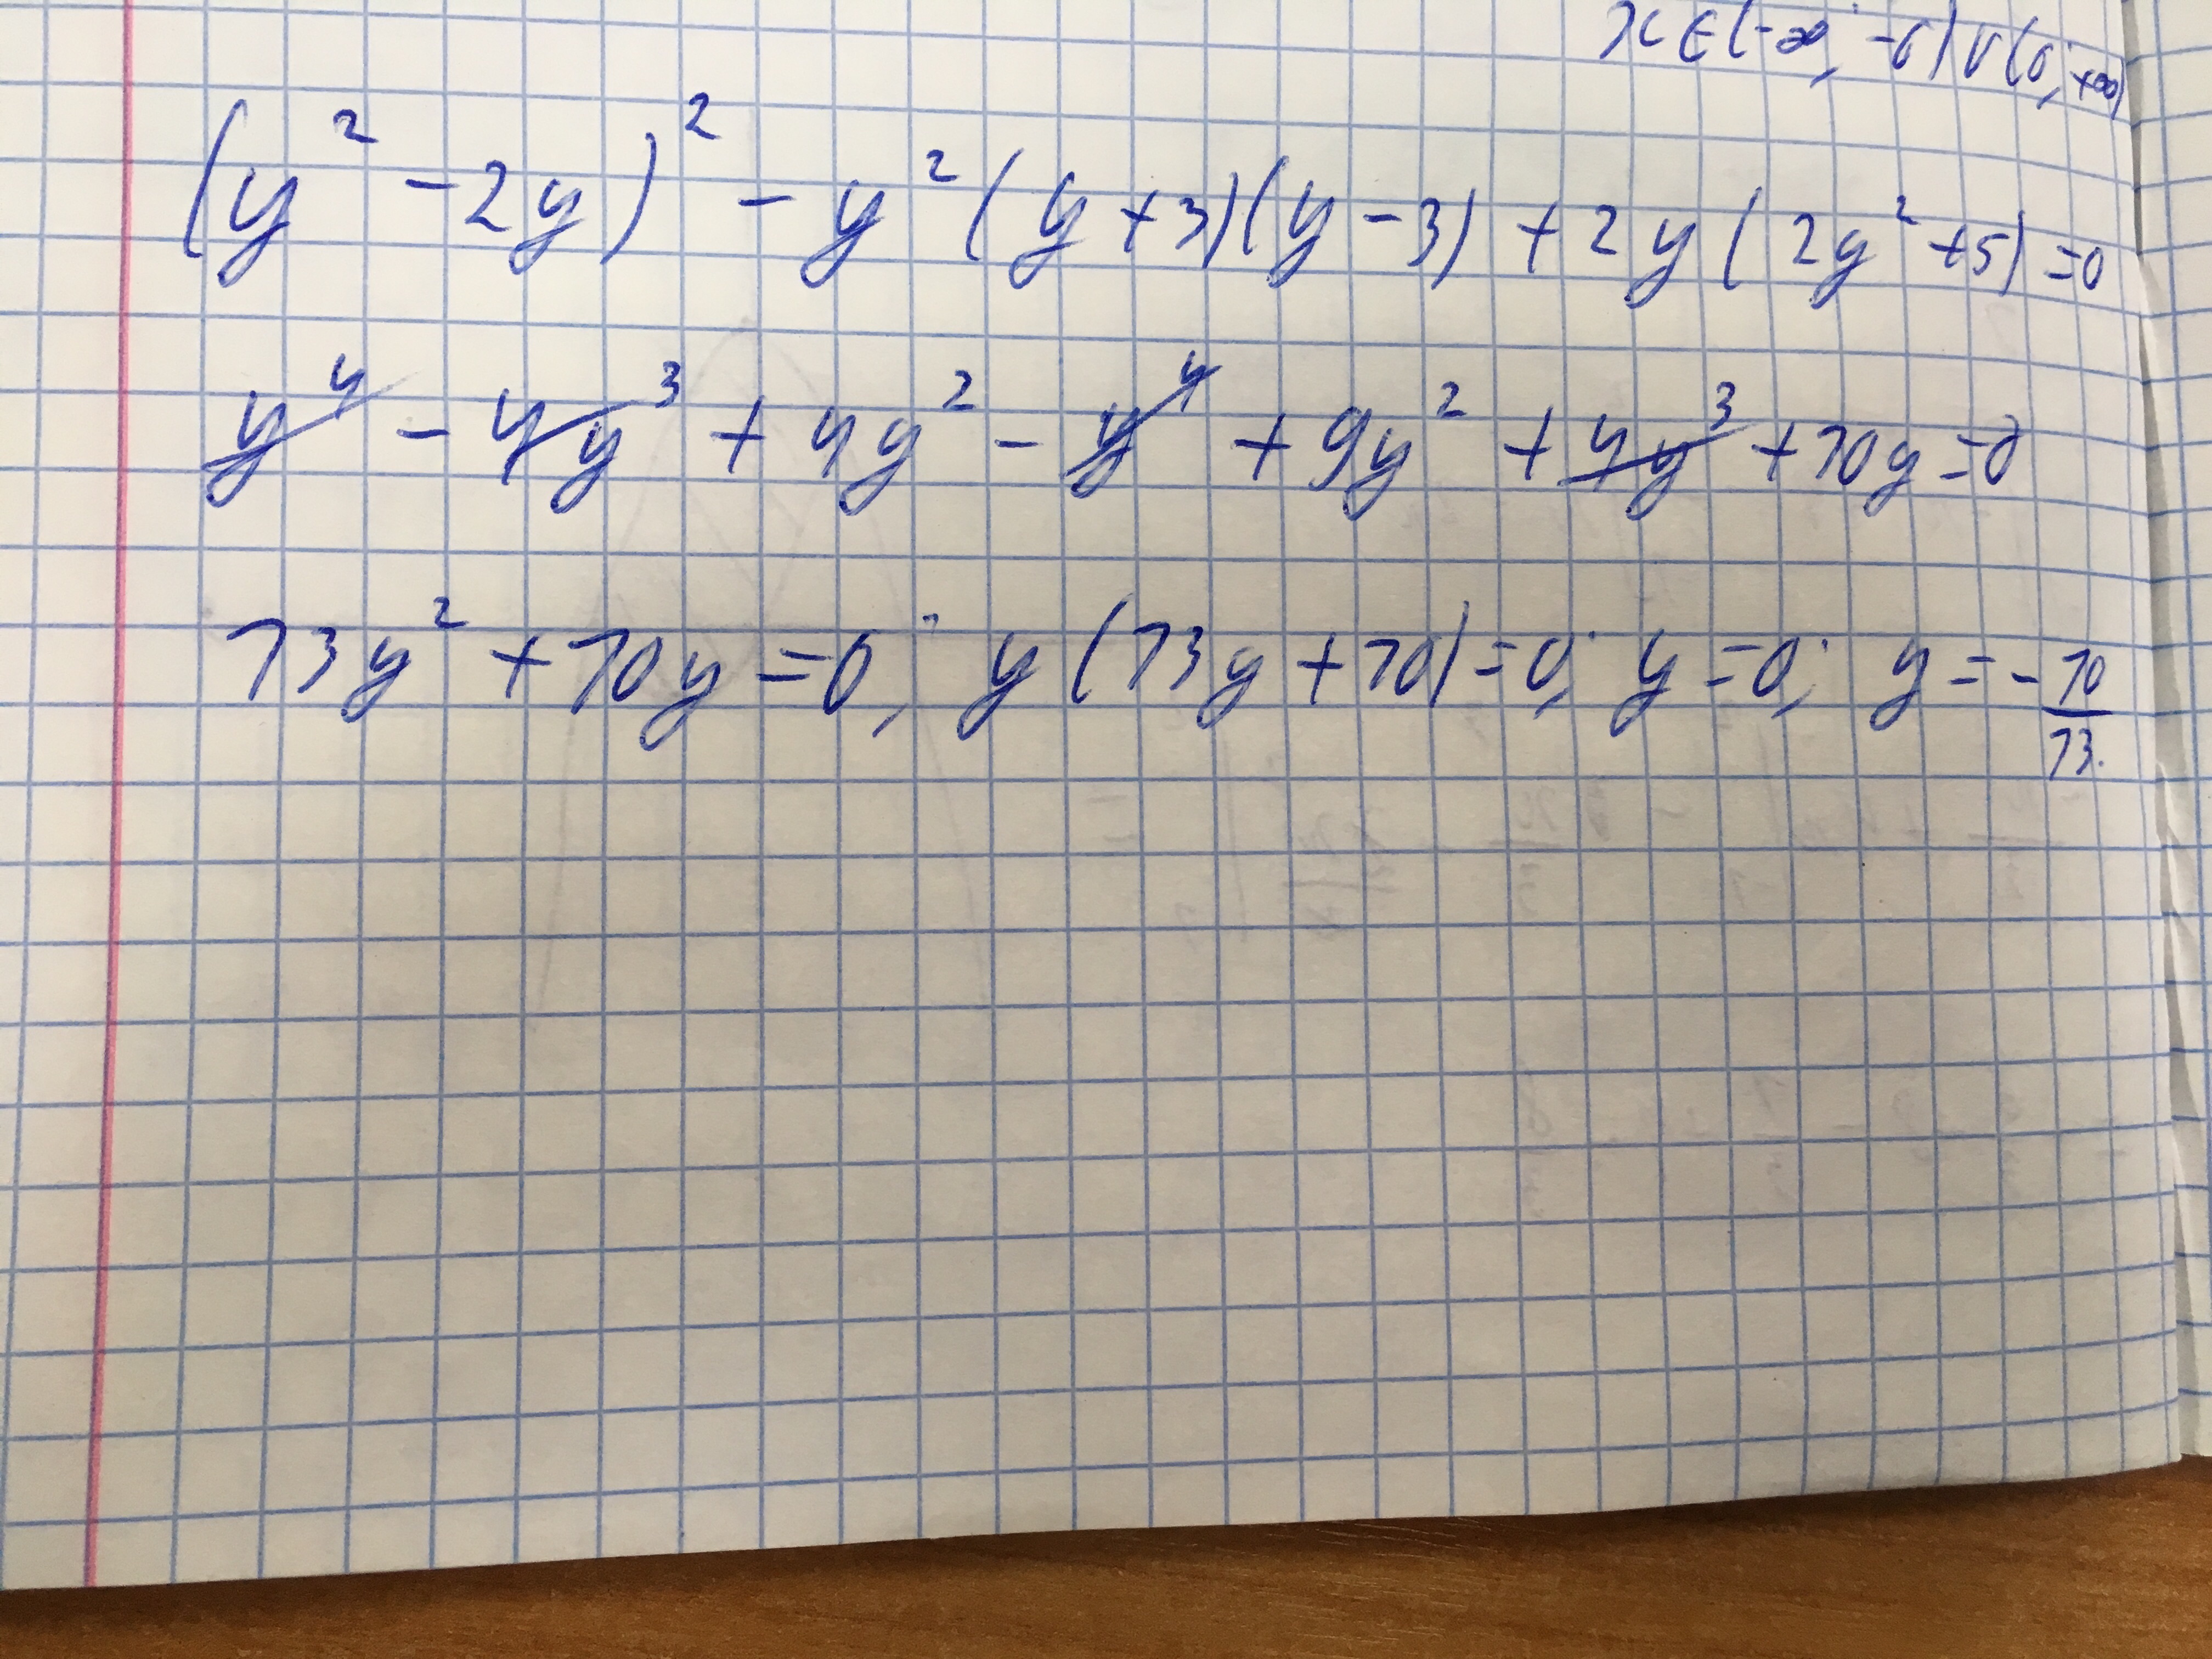 x ∈ (-∞; -6) ∪ (0; +∞)
(y² - 2y)² - y²(y + 3)(y - 3) + 2y(2y² + 5) = 0
y⁴ - 4y³ + 4y² - y⁴ + 9y² + 4y³ + 10y = 0
13y² + 10y = 0; y(13y + 10) = 0; y = 0; y = -10/13.